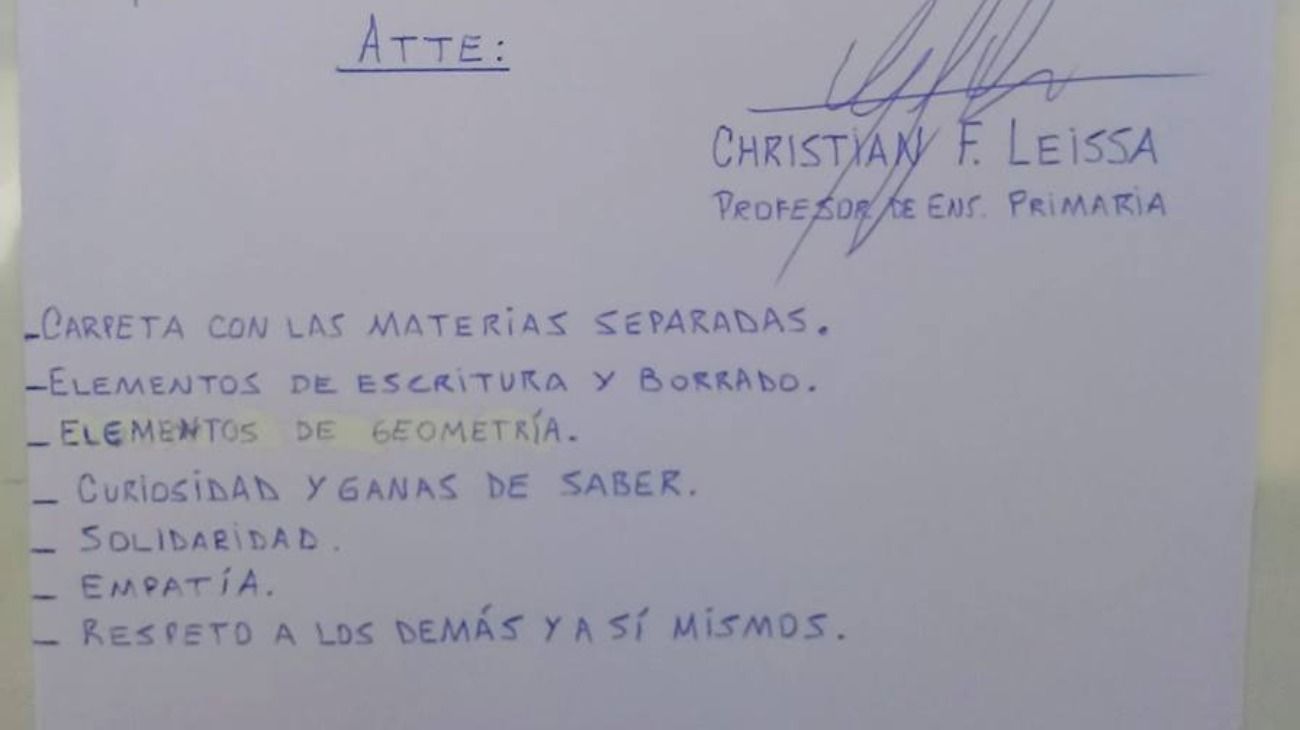 ATTE:
CHRISTIAN F. LEISSA
PROFESOR DE ENS. PRIMARIA
-CARPETA CON LAS MATERIAS SEPARADAS.
-ELEMENTOS DE ESCRITURA Y BORRADO.
- ELEMENTOS DE GEOMETRÍA.
- CURIOSIDAD Y GANAS DE SABER.
- SOLIDARIDAD.
- EMPATÍA.
- RESPETO A LOS DEMÁS Y A SÍ MISMOS.